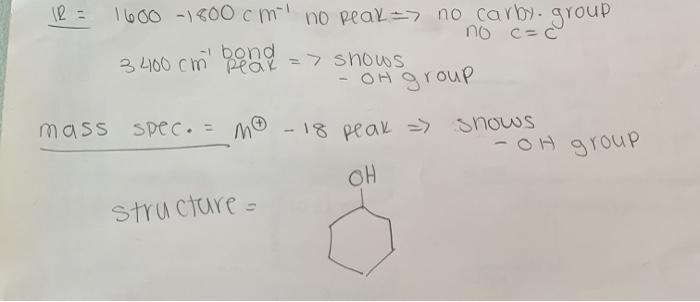 IR = 1600 -1800 cm⁻¹ no peak => no carby. group
no c=c
3400 cm⁻¹ bond peak => shows
- OH group
mass spec. = M⊕ - 18 peak => shows
- OH group
OH
structure =